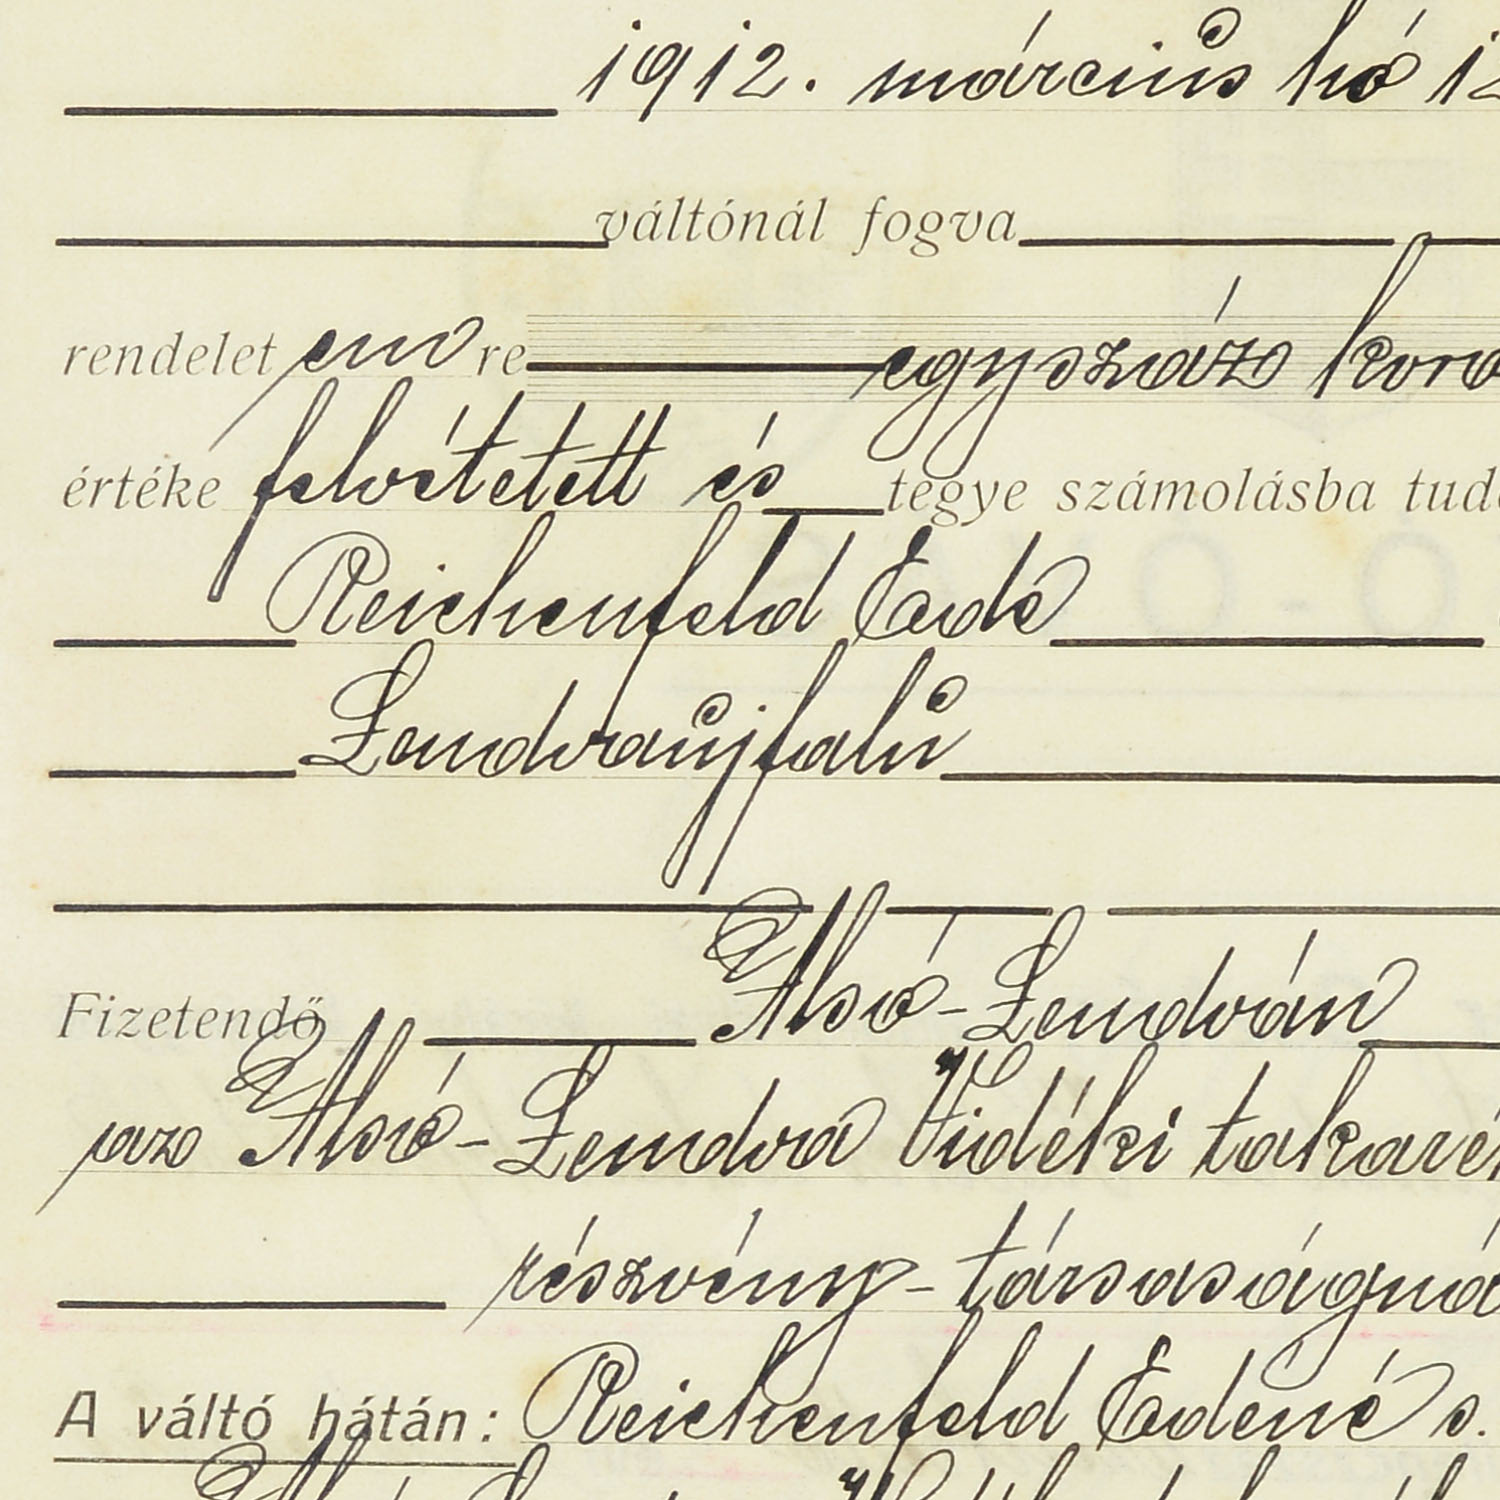 1912. március hó 12
váltónál fogva
rendelet em re egyszáz koro
értéke felvétetett és tegye számolásba tud
Reichenfeld Ede
Lendvaújfalu
Fizetendő Alsó-Lendván
az Alsó-Lendva Vidéki takaré
részvény-társaságná
A váltó hátán: Reichenfeld Edéné s.